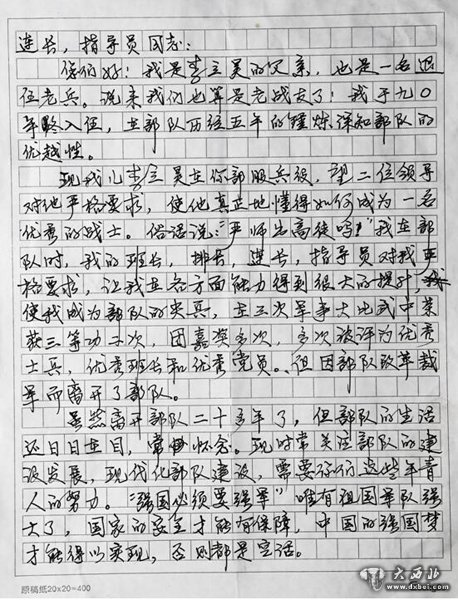 连长，指导员同志：
你们好！我是李立昊的父亲，也是一名退
伍老兵。说来我们也算是老战友了！我于九〇
年龄入伍，在部队历经五年的锤炼深知部队的
优越性。
现我儿李立昊在你部服兵役，望二位领导
对他严格要求，使他真正地懂得如何成为一名
优秀的战士。俗话说："严师出高徒吗"我在部
队时，我的班长，排长，连长，指导员对我严
格要求，让我在各方面能力得到很大的提升，
使我成为部队的尖兵，在三次军事大比武中荣
获三等功二次，团嘉奖多次，多次被评为优秀
士兵，优秀班长和优秀党员。但因部队改革裁
军而离开了部队。
虽然离开部队二十多年了，但部队的生活
还日日在目，常常怀念。现时常关注部队的建
设发展，现代化部队建设，需要你们这些年青
人的努力。"强国必须要强军"唯有祖国军队强
大了，国家的安全才能有保障，中国的强国梦
才能得以实现，否则都是空话。
原稿纸20×20=400
大西北
www.dxbei.com